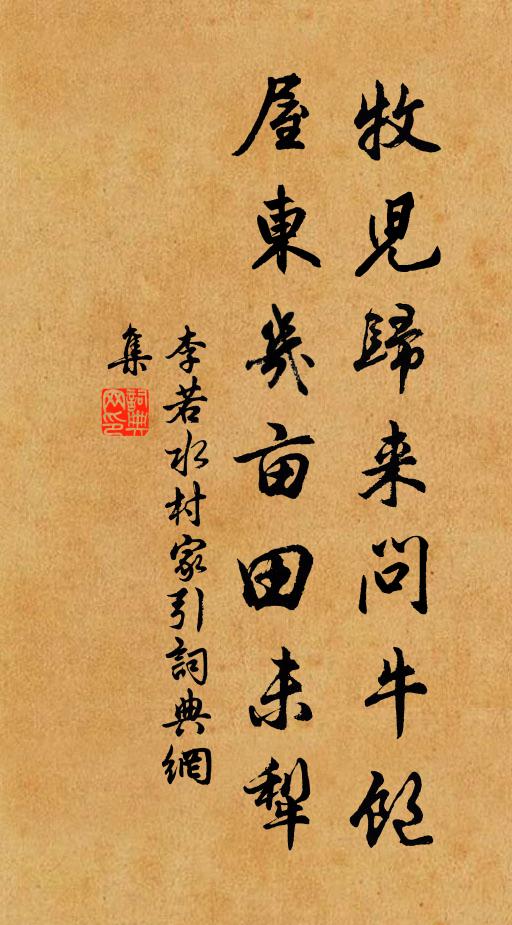 牧児歸来問牛飽
屋東幾亩田未犁
李若水村家引詞典網
集
詞典网印